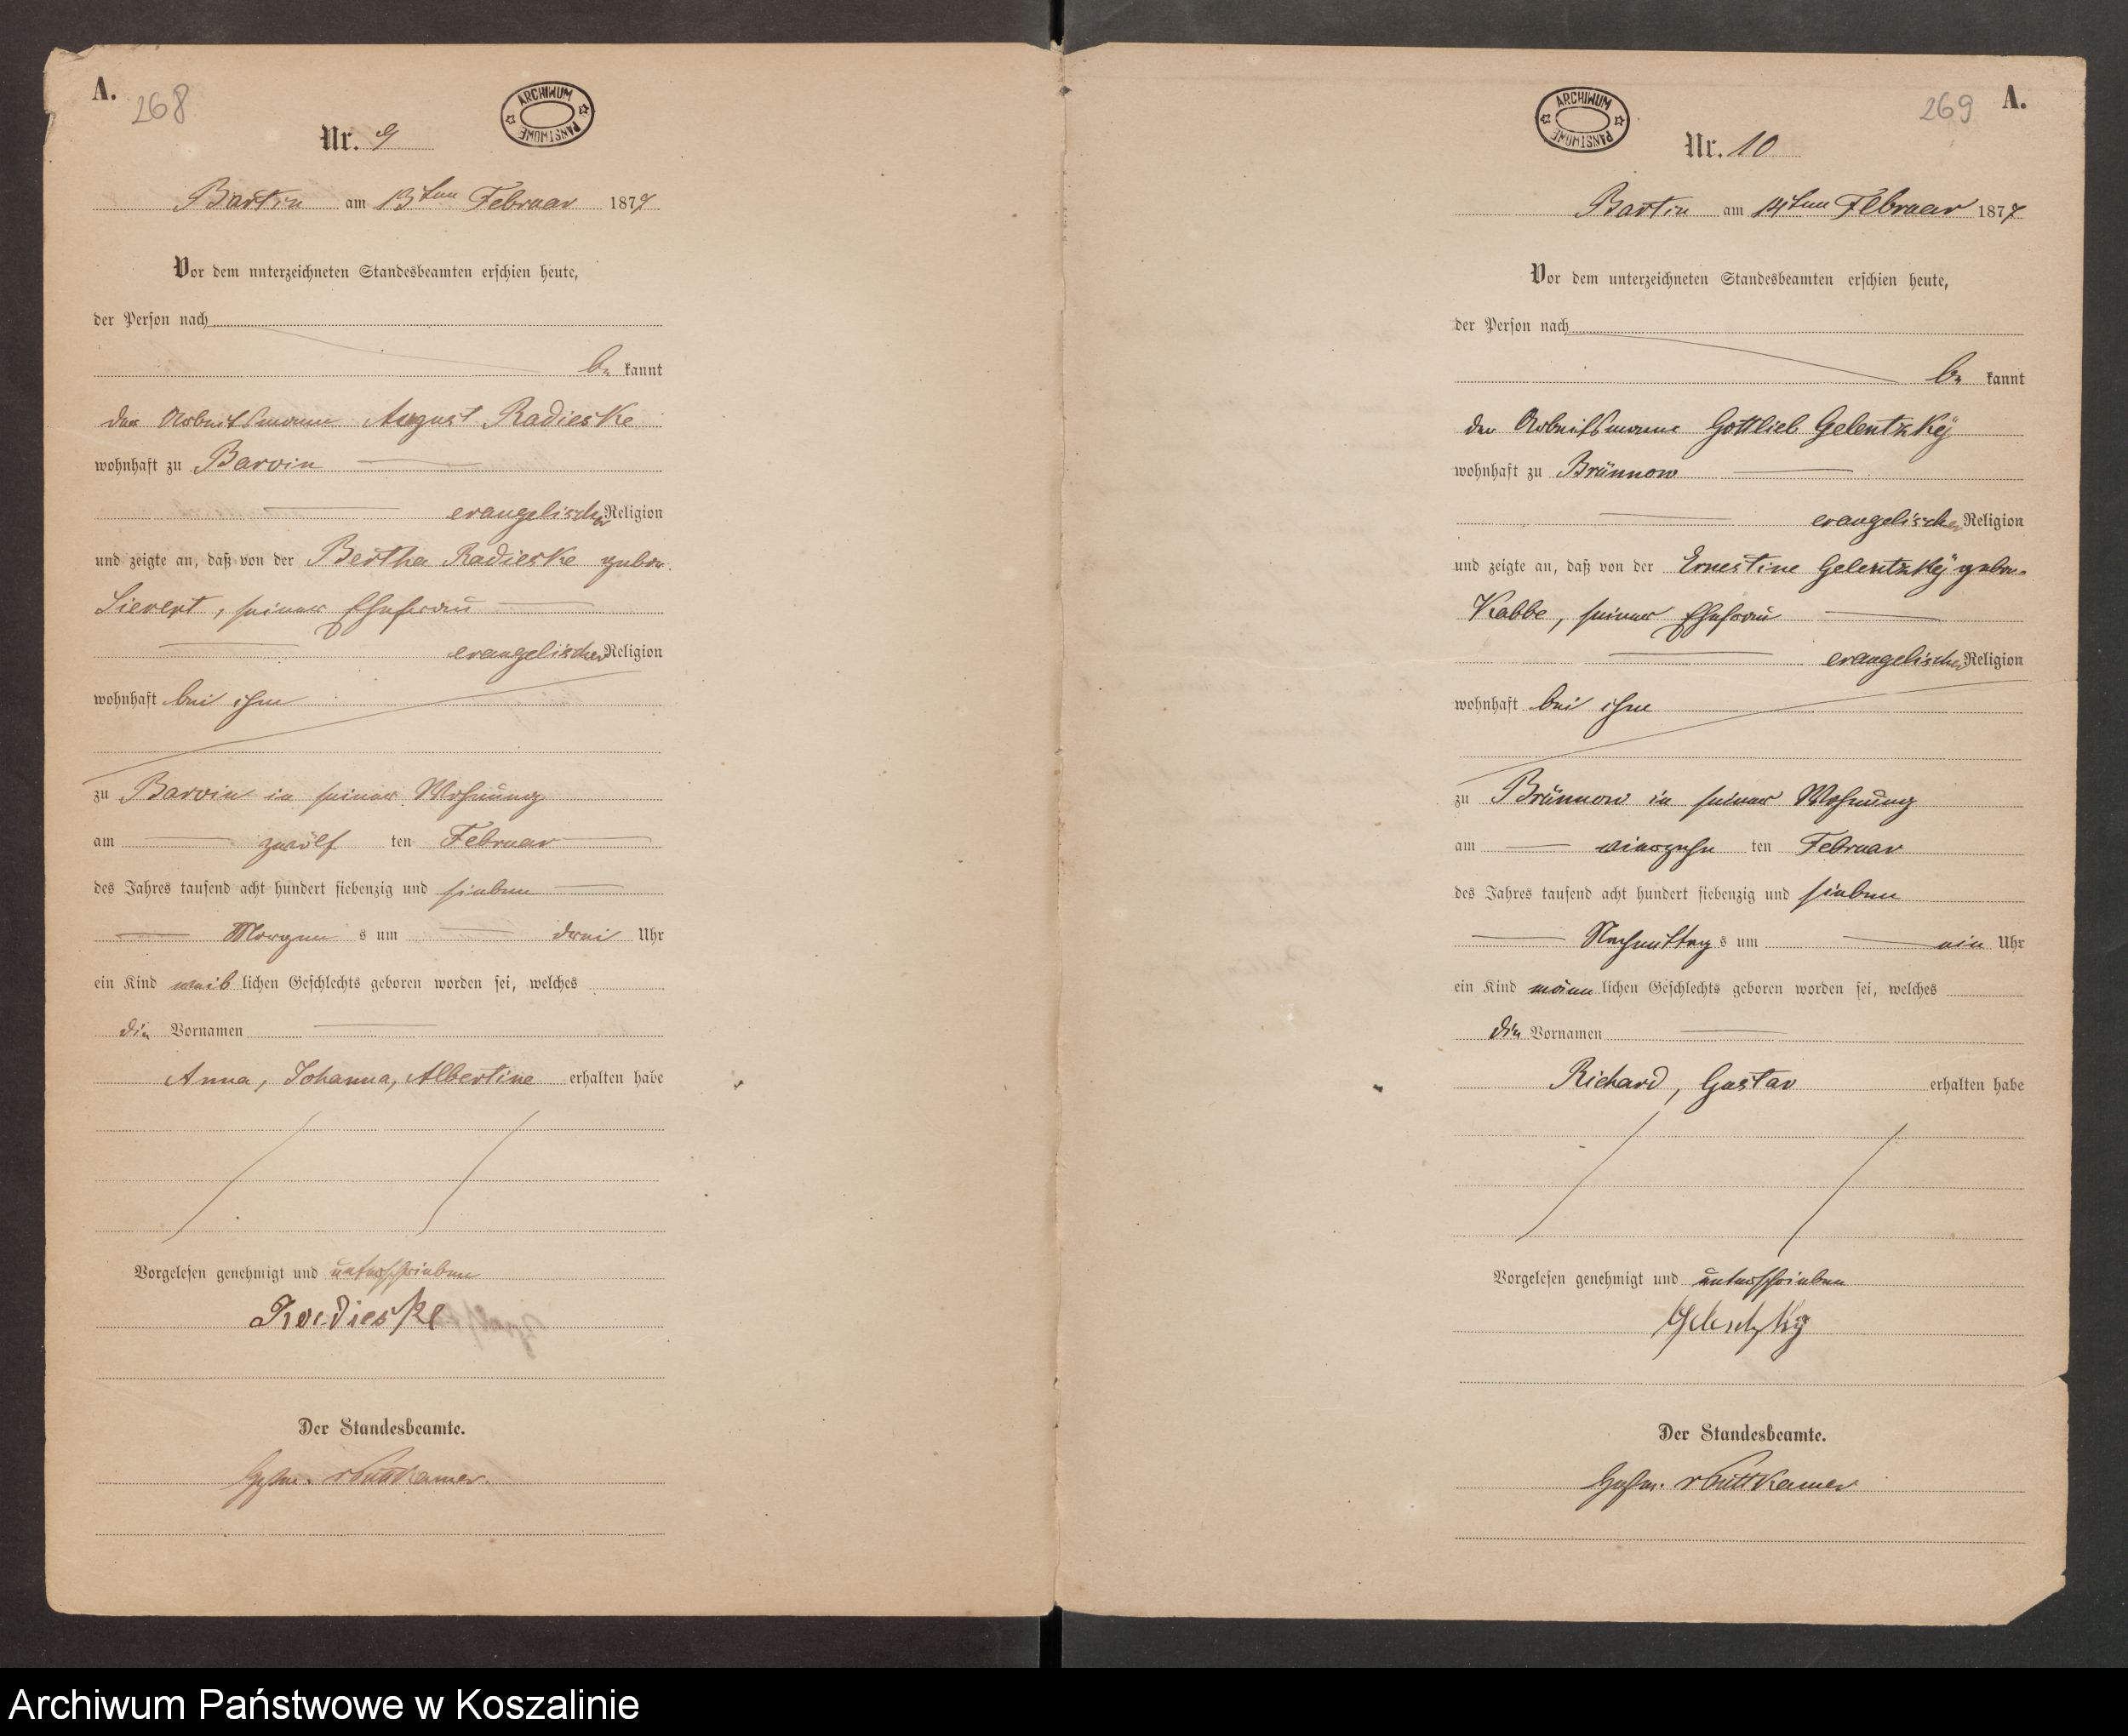 A.
268
ARCHIWUM PAŃSTWOWE
Nr. 9
Bartin am 13ten Februar 1877
Vor dem unterzeichneten Standesbeamten erschien heute,
der Person nach
be kannt
der Arbeitsmann August Radieske
wohnhaft zu Barvin
evangelischer Religion
und zeigte an, daß von der Bertha Radieske gebor.
Sievert, seiner Ehefrau
evangelischer Religion
wohnhaft bei ihm
zu Barvin in seiner Wohnung
am zwölf ten Februar
des Jahres tausend acht hundert siebenzig und sieben
Morgen s um drei Uhr
ein Kind weib lichen Geschlechts geboren worden sei, welches
die Vornamen
Anna, Johanna, Albertine erhalten habe
Vorgelesen genehmigt und unterschrieben
Radieske
Der Standesbeamte.
vPuttkamer.
269
A.
ARCHIWUM PAŃSTWOWE
Nr. 10
Bartin am 14ten Februar 1877
Vor dem unterzeichneten Standesbeamten erschien heute,
der Person nach
be kannt
der Arbeitsmann Gottlieb Gelentzkÿ
wohnhaft zu Brünnow
evangelischer Religion
und zeigte an, daß von der Ernestine Gelentzkÿ gebor.
Kabbe, seiner Ehefrau
evangelischer Religion
wohnhaft bei ihm
zu Brünnow in seiner Wohnung
am vierzehn ten Februar
des Jahres tausend acht hundert siebenzig und sieben
Nachmittag s um ein Uhr
ein Kind männ lichen Geschlechts geboren worden sei, welches
die Vornamen
Richard, Gustav erhalten habe
Vorgelesen genehmigt und unterschrieben
Gelentzkÿ
Der Standesbeamte.
vPuttkamer
Archiwum Państwowe w Koszalinie